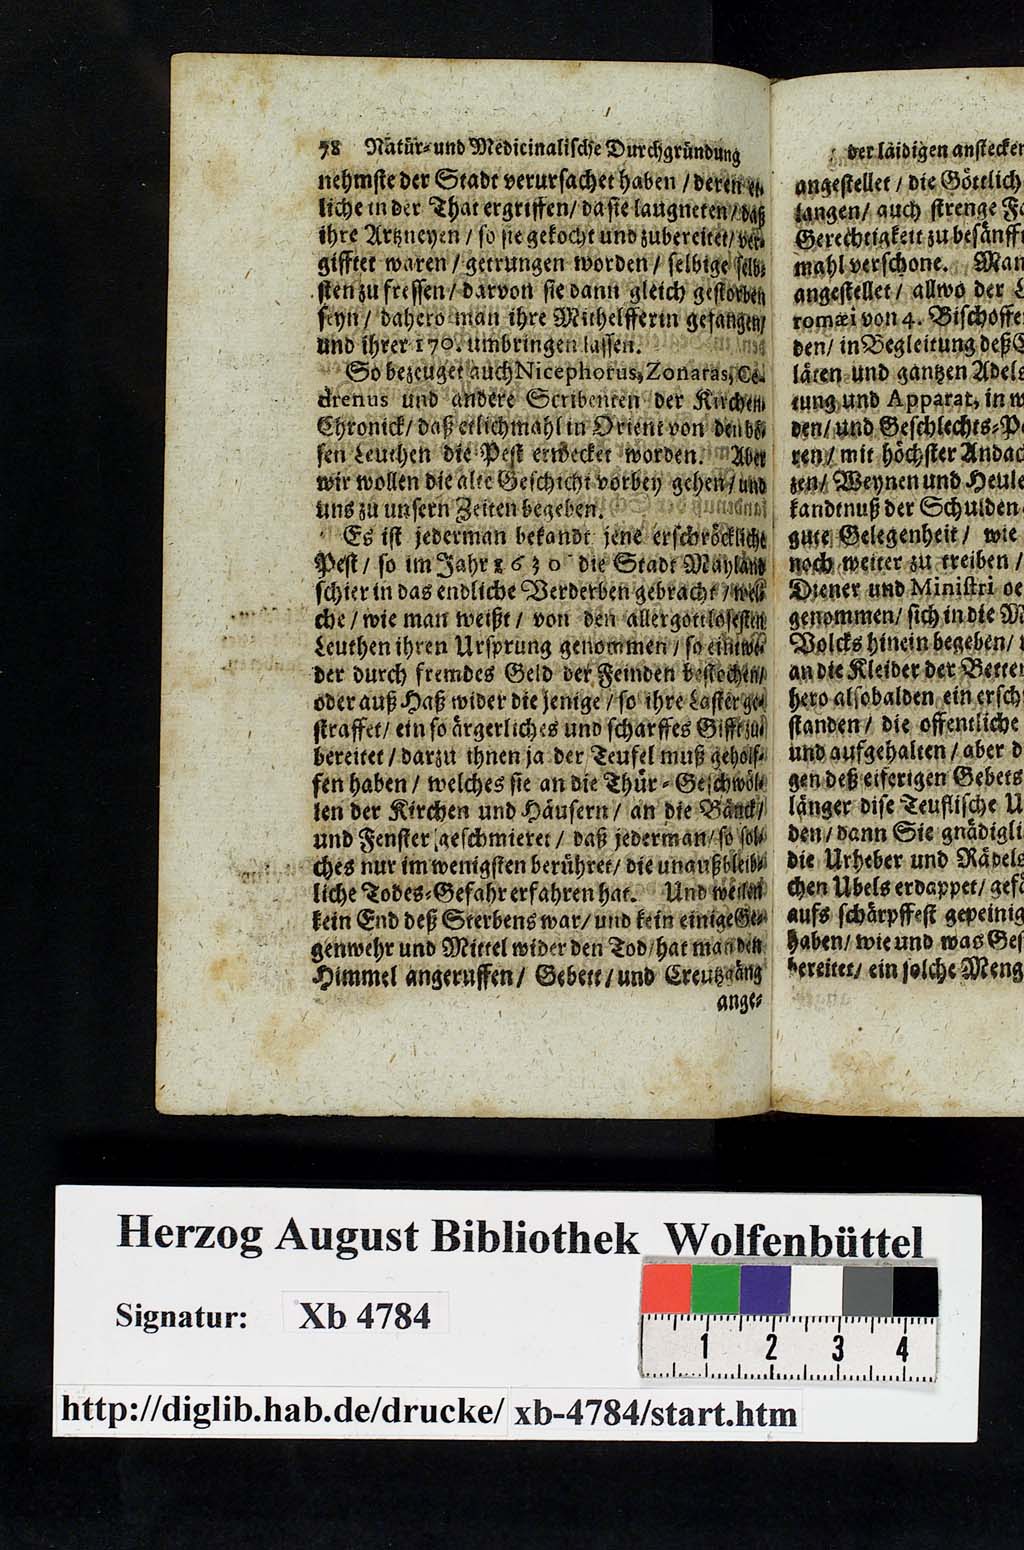 78 Natür- und Medicinalische Durchgründung
nehmste der Stadt verursachet haben / deren et-
liche in der That ergriffen / da sie laugneten / daß
ihre Artzneyen / so sie gekocht und zubereitet / ver-
gifftet waren / getrungen worden / selbige selb-
sten zu fressen / darvon sie dann gleich gestorben
seyn / dahero man ihre Mithelfferin gefangen /
und ihrer 170. umbringen lassen.
So bezeuget auch Nicephorus, Zonaras, Ce-
drenus und andere Scribenten der Kirchen-
Chronick / daß etlichmahl in Orient von den bö-
sen Leuthen die Pest erwecket worden. Aber
wir wollen die alte Geschicht vorbey gehen / und
uns zu unsern Zeiten begeben.
Es ist jederman bekandt jene erschröckliche
Pest / so im Jahr 1630 die Stadt Mayland
schier in das endliche Verderben gebracht / wel-
che / wie man weißt / von den allergottlosesten
Leuthen ihren Ursprung genommen / so eintwe-
der durch fremdes Geld der Feinden bestochen /
oder auß Haß wider die jenige / so ihre Laster ge-
straffet / ein so ärgerliches und scharffes Gifft zu-
bereitet / darzu ihnen ja der Teufel muß geholf-
fen haben / welches sie an die Thür-Geschwöl-
len der Kirchen und Häusern / an die Bänck /
und Fenster geschmieret / daß jederman / so sol-
ches nur im wenigsten berühret / die unaußbleib-
liche Todes-Gefahr erfahren hat. Und weilen
kein End deß Sterbens war / und kein einige Ge-
genwehr und Mittel wider den Tod / hat man den
Himmel angeruffen / Gebett / und Creutzgäng
ange-
der läidigen anstecken
angestellet / die Göttlich
langen / auch strenge
Gerechtigkeit zu besänfft
mahl verschone. Man
angestellet / allwo der
romæi von 4. Bischoffe
den / in Begleitung deß
läten und gantzen Adels
tung und Apparat, in
den / und Geschlechts-
ren / mit höchster Andac
zen / Weynen und Heule
kandtnuß der Schulden
gute Gelegenheit / wie
noch weiter zu treiben /
Diener und Ministri
genommen / sich in die
Volcks hinein begeben /
an die Kleider der Better
hero alsobalden ein ersch
standen / die offentliche
und aufgehalten / aber
gen deß eiferigen Gebets
länger dise Teuflische
den / dann Sie gnädigli
die Urheber und Rädels
chen Ubels erdappet / gefä
aufs schärpffest gepeinig
haben / wie und was
bereitet / ein solche Meng
Herzog August Bibliothek Wolfenbüttel
Signatur: Xb 4784
1 2 3 4
http://diglib.hab.de/drucke/ xb-4784/start.htm